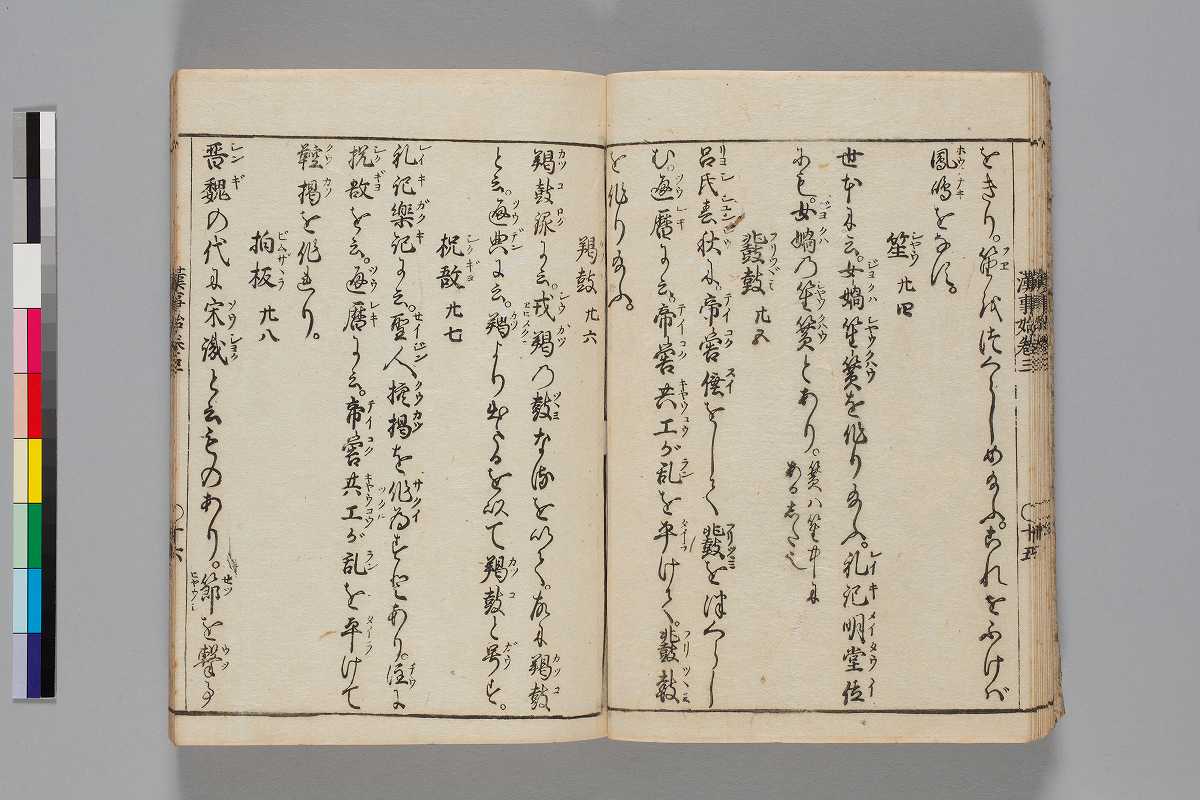 をきり。笛をつくらしめ給ふ。これをふけば
鳳鳴をなす。
笙 廿四
世本に云。女媧笙簧を作り給ふ。礼記明堂位
にも。女媧の笙簧とあり。簧ハ笙中に
あるした也
鼗鼓 廿五
呂氏春秋に。帝嚳倕をして。鼗鼓を作らし
む。通暦に云。帝嚳共工が乱を平けて。鼗鼓
を作り給ふ。
羯鼓 廿六
羯鼓録に云。戎羯の鼓なるを以て。故に羯鼓
と云。通典に云。羯より出たるを以て羯鼓と号す。
柷敔 廿七
礼記樂記に云。聖人椌楬を作為すとあり。注に
柷敔を云。通暦に云。帝嚳共工が乱を平けて
鞚楬を作れり。
拍板 廿八
晋魏の代に宋識と云ものあり。節を撃事
漢事始巻三
十五
十六